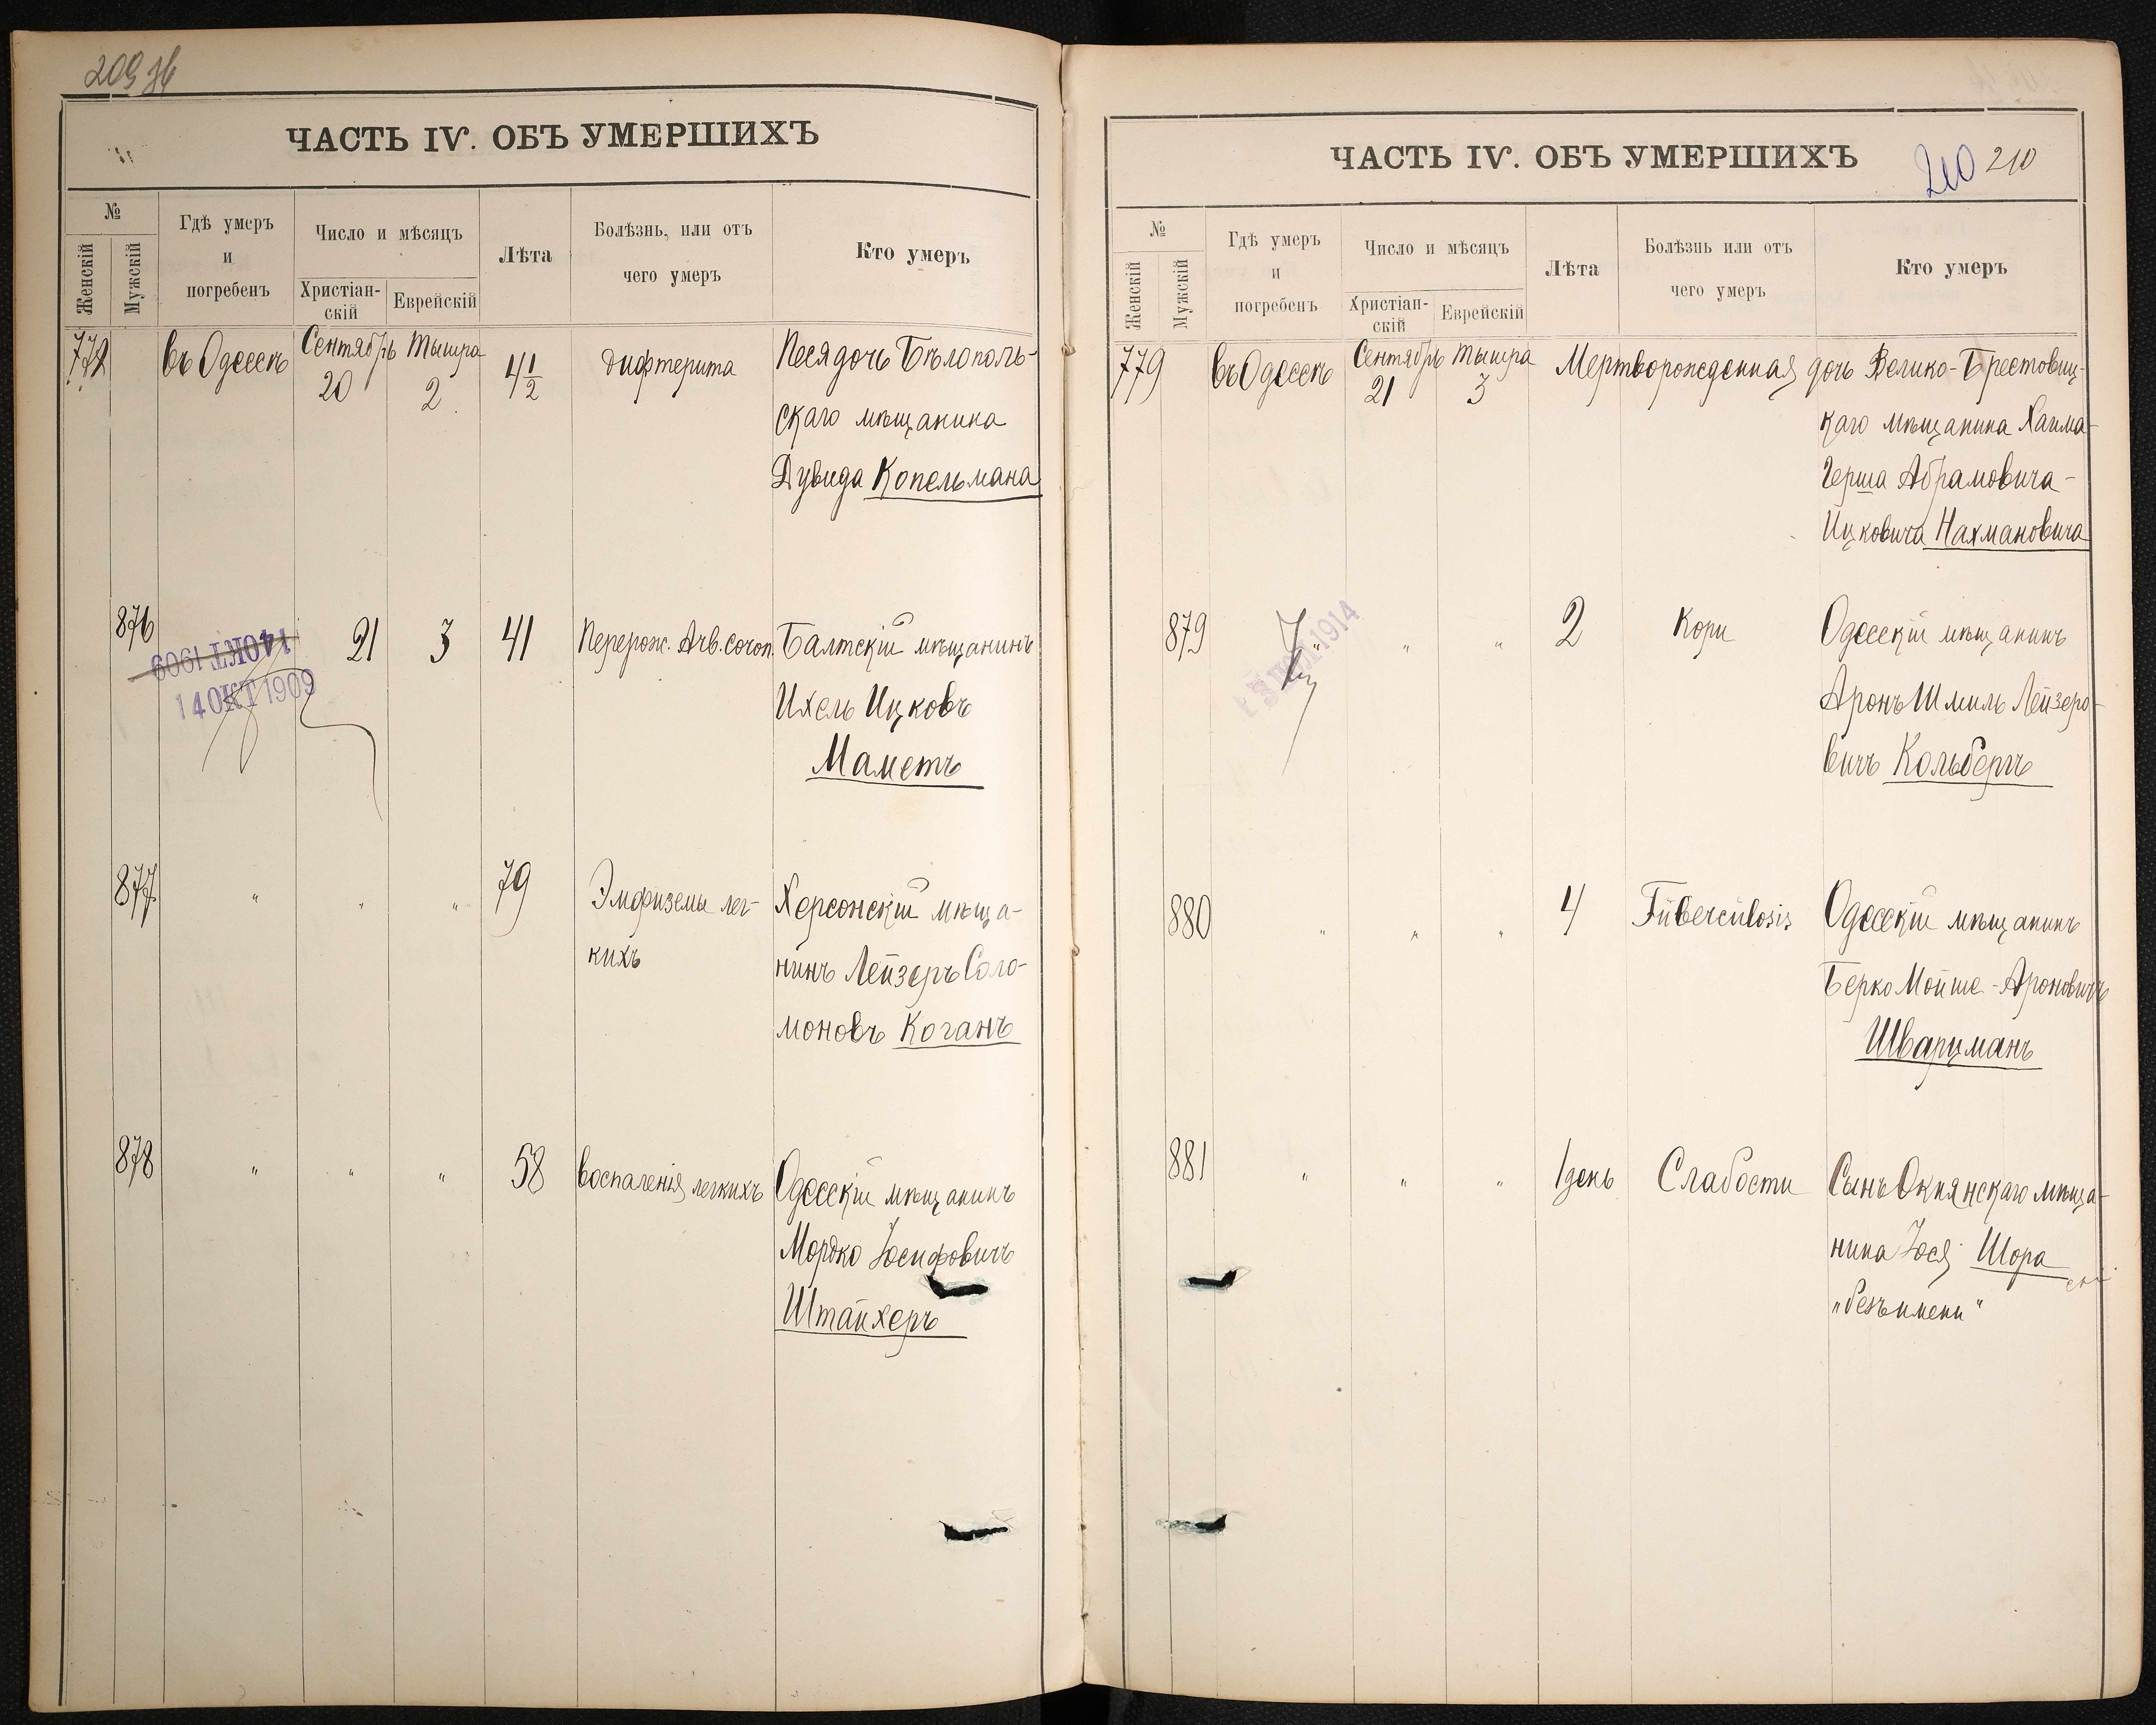 ЧАСТЬ IV. ОБЪ УМЕРШИХЪ
№
Женскій
Мужскій
Гдѣ умеръ
и
погребенъ
Число и мѣсяцъ
Христіан-
скій
Еврейскій
Лѣта
Болѣзнь, или отъ
чего умеръ
Кто умеръ
въ Одессѣ
Сентябрь
20
Тышра
2
4 1/2
Дифтерита
Песя дочь Бѣлополь-
скаго мѣщанина
Дувида Копельмана
876
14 ОКТ 1909
14 ОКТ 1909
21
3
41
Перерож.
Балтскій мѣщанинъ
Ихель Ицковъ
Маметъ
877
"
"
"
79
Эмфиземы лег-
кихъ
Херсонскій мѣща-
нинъ Лейзеръ Соло-
моновъ Коганъ
878
"
"
"
58
Воспаленія легкихъ
Одесскій мѣщанинъ
Мордко Іосифовичъ
Штайхеръ
ЧАСТЬ IV. ОБЪ УМЕРШИХЪ
210 210
№
Женскій
Мужскій
Гдѣ умеръ
и
погребенъ
Число и мѣсяцъ
Христіан-
скій
Еврейскій
Лѣта
Болѣзнь или отъ
чего умеръ
Кто умеръ
779
въ Одессѣ
Сентябрь
21
Тышра
3
Мертворожденная дочь Велико-Брестовиц-
каго мѣщанина Хаима-
Герша Абрамовича-
Ицковича Нахмановича
879
1914
"
"
"
2
Кори
Одесскій мѣщанинъ
Аронъ Шмиль Лейзеро-
вичъ Кольбергъ
880
"
"
"
4
Tuberculosis
Одесскій мѣщанинъ
Берко Мойше-Ароновичъ
Шварцманъ
881
"
"
"
1 день
Слабости
Сынъ Окнянскаго мѣща-
нина Іося Шора
"безъ имени"